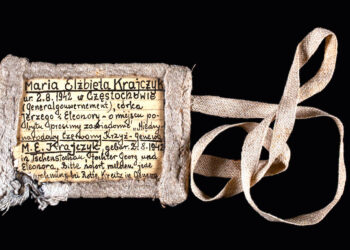 Maria Elżbieta Krajczyk
ur. 2.8.1942 w Częstochowie
(Generalgouvernement), córka
Jerzego i Eleonory - o miejscu po-
bytu uprasimy zawiadomić "Między-
narodowy Czerwony Krzyż - Genewa
M.E. Krajczyk, gebor. 2.8.1942
in Tschenstochau, Tochter Georg und
Eleonora, Bitte sofort melden
Rote Kreuz in